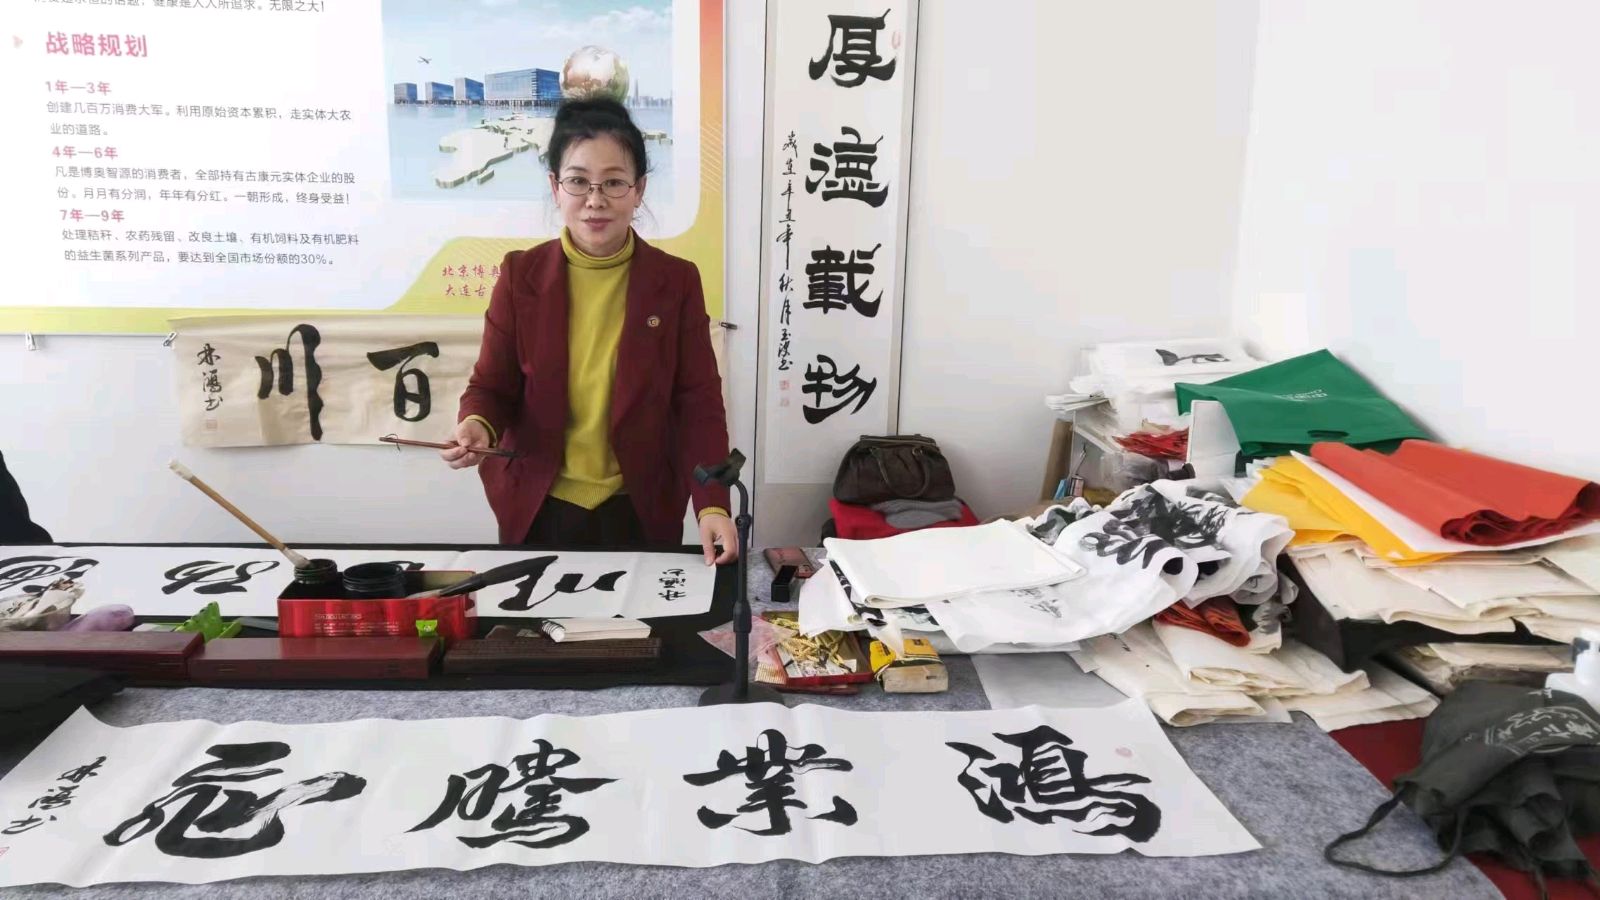 消费是永恒的话题，健康是人人所追求。无限之大！
战略规划
1年—3年
创建几百万消费大军。利用原始资本累积，走实体大农
业的道路。
4年—6年
凡是博奥智源的消费者，全部持有古康元实体企业的股
份。月月有分润，年年有分红。一朝形成，终身受益！
7年—9年
处理秸秆、农药残留、改良土壤、有机饲料及有机肥料
的益生菌系列产品，要达到全国市场份额的30%。
北京博奥
大连古
厚德載物
百川
林鴻书
鴻業騰飛
林鴻书